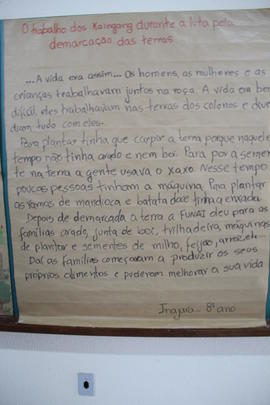 O trabalho dos Kaingang durante a luta pela
demarcação das terras.
...A vida era assim... Os homens, as mulheres e as
crianças trabalhavam juntos na roça. A vida era bem
difícil, eles trabalhavam nas terras dos colonos e
diam tudo com eles.
Para plantar tinha que carpir a terra porque naquele
tempo não tinha arado e nem boi. Para por a semen
te na terra a gente usava o xaxo. Nesse tempo
poucas pessoas tinham a máquina. Pra plantar
as ramas de mandioca e batata doce tinha a enxada
Depois de demarcada a terra a FUNAI deu para as
famílias arado, junta de boi, trilhadeira, máquinas
de plantar e sementes de milho, feijão, arroz etc.
Daí as famílias começaram a produzir os seus
próprios alimentos e puderam melhorar a sua vida
8º ano